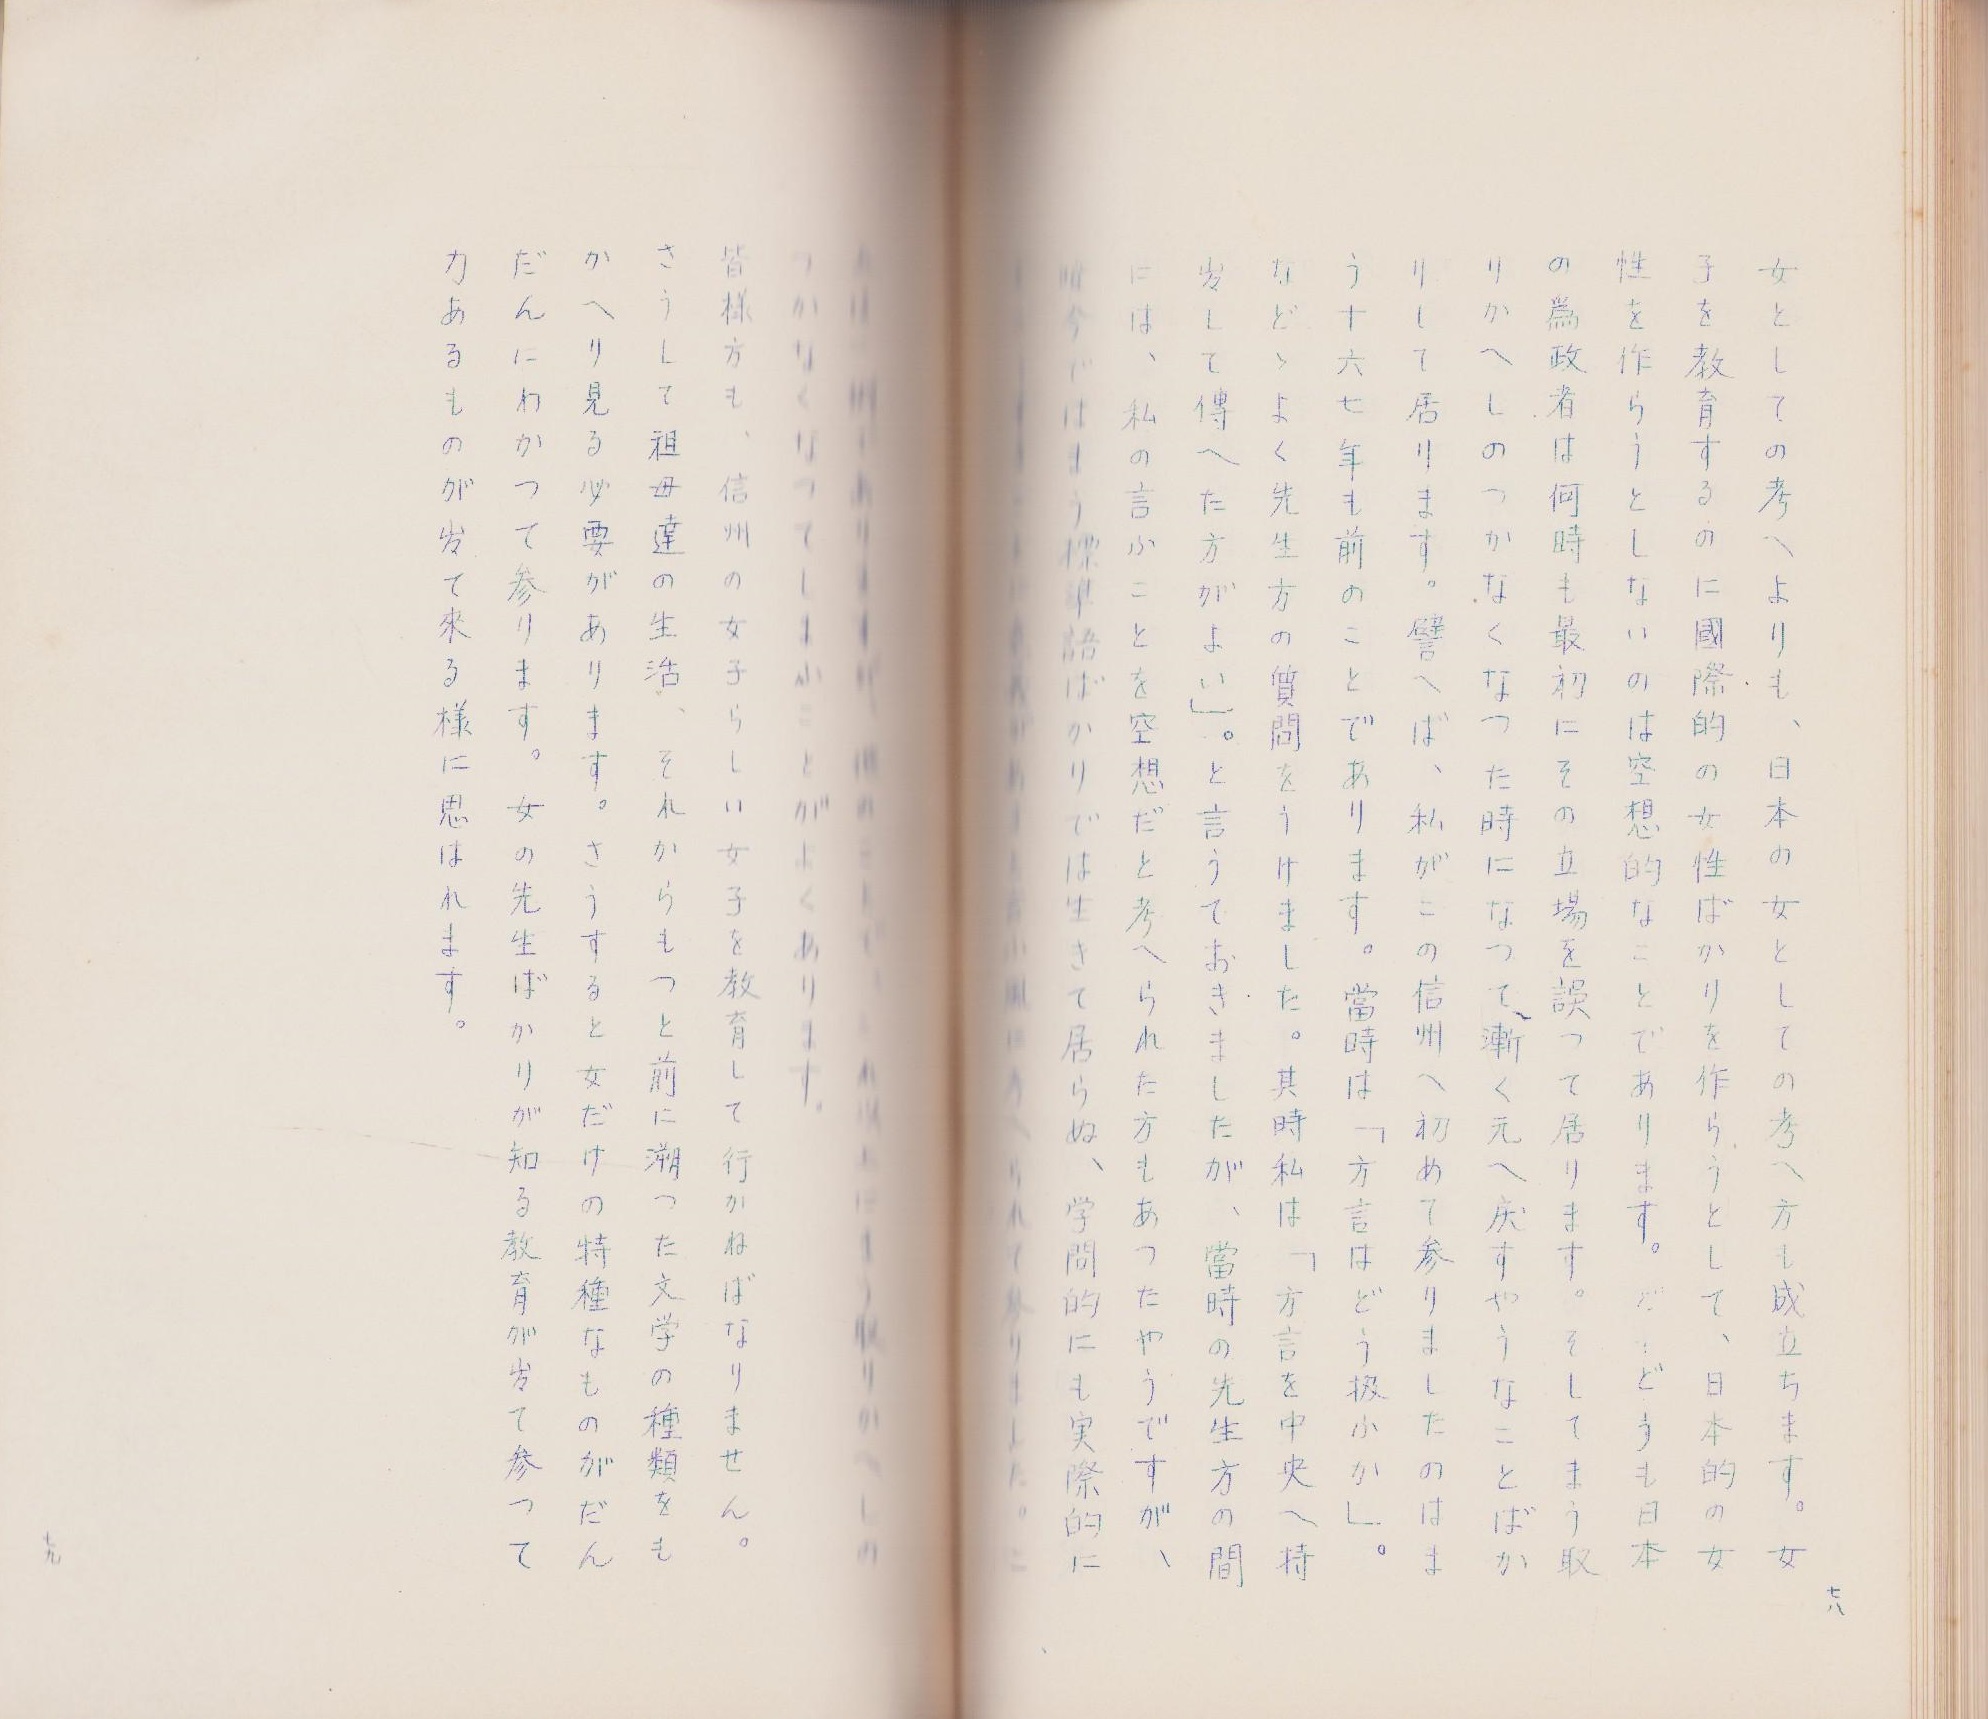 女としての考へよりも、日本の女としての考へ方も成立ちます。女
子を教育するのに國際的の女性ばかりを作らうとして、日本的の女
性を作らうとしないのは空想的なことであります。どうも日本
の爲政者は何時も最初にその立場を誤つて居ります。そしてまう取
りかへしのつかなくなつた時になつて漸く元へ戻すやうなことばか
りして居ります。譬へば、私がこの信州へ初めて参りましたのはま
う十六七年も前のことであります。當時は「方言はどう扱ふか」。
などゝよく先生方の質問をうけました。其時私は「方言を中央へ持
出して傳へた方がよい」。と言うておきましたが、當時の先生方の間
には、私の言ふことを空想だと考へられた方もあつたやうですが、
唯今ではまう標準語ばかりでは生きて居らぬ、学問的にも実際的に
へられて参りました。こ
れは一例でありますが、
まう取りかへしの
つかなくなつてしまふことがよくあります。
皆様方も、信州の女子らしい女子を教育して行かねばなりません。
さうして祖母達の生活、それからもつと前に溯つた文学の種類をも
かへり見る必要があります。さうすると女だけの特種なものがだん
だんにわかつて参ります。女の先生ばかりが知る教育が出て参つて
力あるものが出て來る様に思はれます。
七八
七九